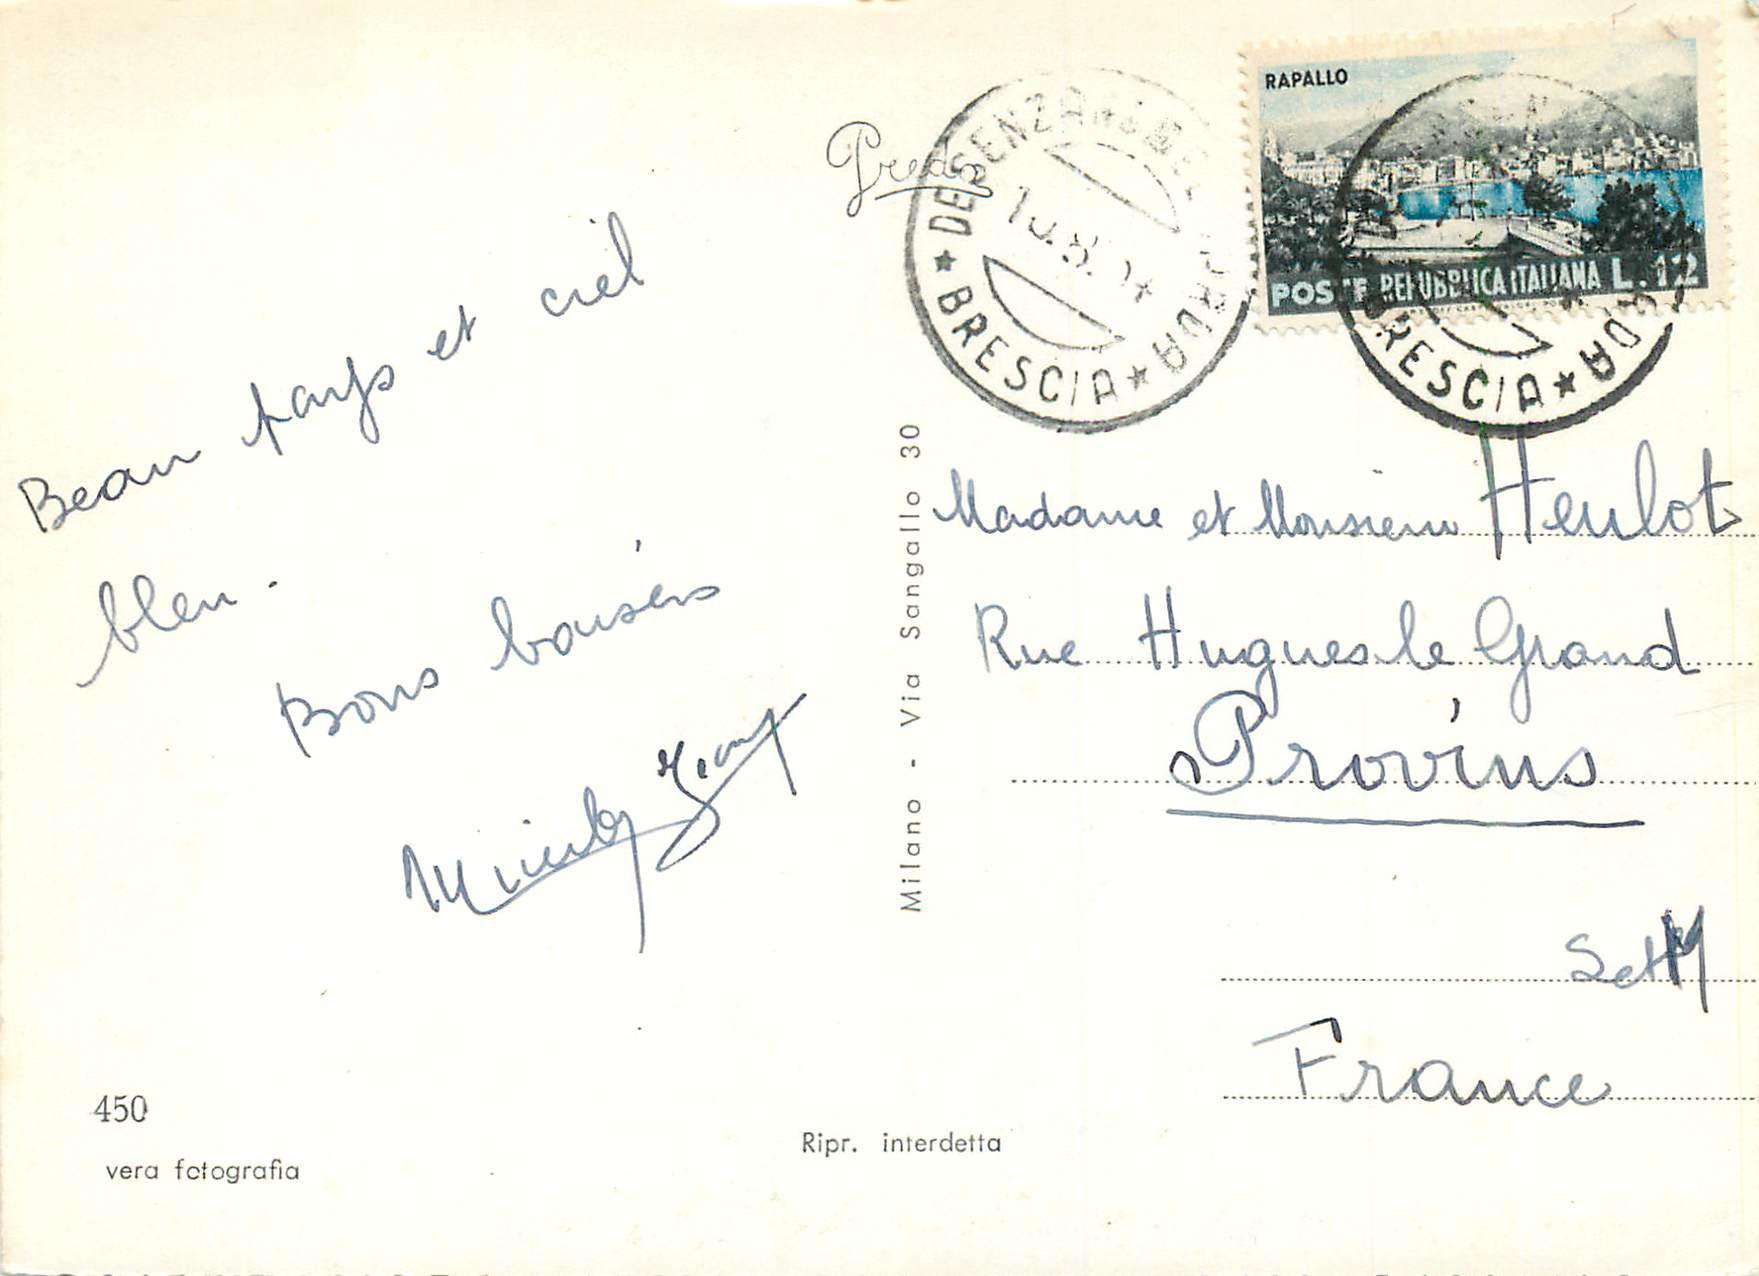 RAPALLO
POSTE REPUBBLICA ITALIANA L.12
DESENZANO DEL GARDA
★ BRESCIA ★
BRESCIA ★
Preda
Beau temps et ciel
bleu.
Bons baisers
Milano - Via Sangallo 30
Madame et Monsieur Heulot
Rue Hugues le Grand
Provins
S et M
France
450
vera fotografia
Ripr. interdetta